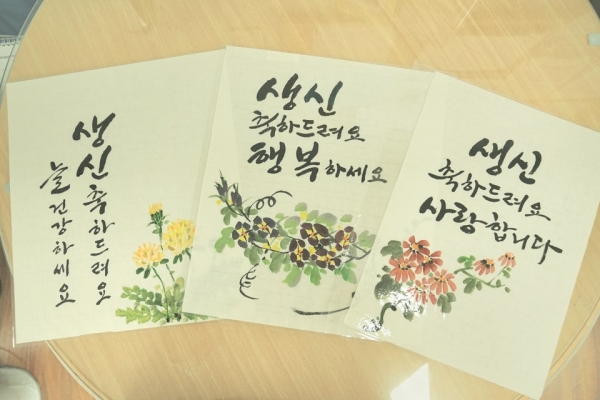 생신축하드려요
늘건강하세요
생신
축하드려요
행복하세요
생신
축하드려요
사랑합니다